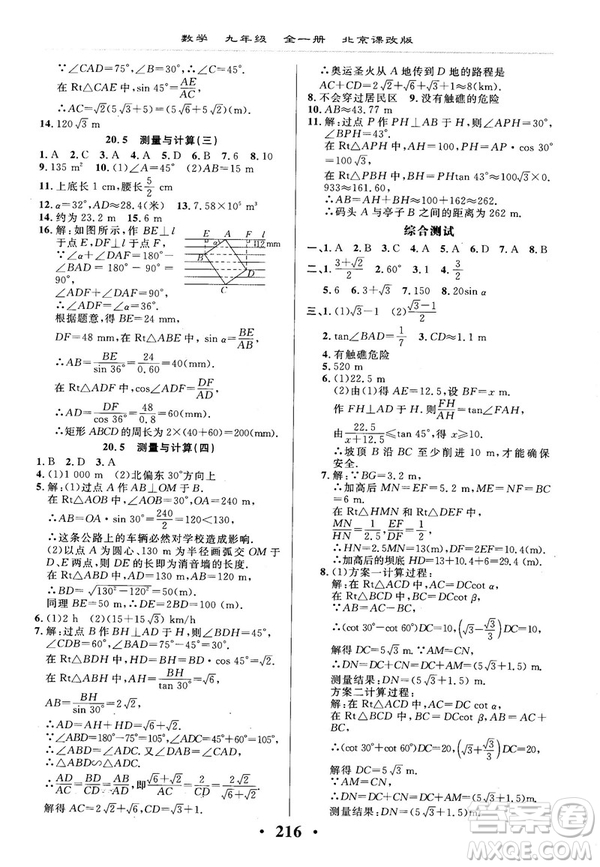 数学 九年级 全一册 北京课改版
∵∠CAD=75°,∴∠ACD=45°.
∵在 Rt△ACE 中,sin 45°=AE/AC
∴AC=√2(5√3+15) m.
14. 120√3 m
20.5 测量与计算(三)
1. A 2. C 3. A 4. A 5. B 6. 7 7. 8 8. 10
9. 135 m² 10. (1)∠A=45° (2)AB=√2
11. 上底长 1 cm,腰长 5/2 cm
12. α=32°,AB≈28.4(米) 13. 7.58×10⁵ m³
14. 约约为 23.2 m 15. 6 m
16. 解:如图,作 BE⊥l
于点 E,DF⊥l
于点 F.
∵∠α+∠DAF=
90°,∠ADF+∠DAF=90°,
∴∠ADF=∠α=36°.
根据题意,得 BE=24 mm,
DF=48 mm.在 Rt△ABE 中,sin α=BE/AB
∴AB=BE/sin 36°≈24/0.60=40(mm).
在 Rt△ADF 中,cos∠ADF=DF/AD
∴AD=DF/cos 36°≈48/0.80=60(mm).
∴矩形 ABCD 的周长为 2×(40+60)=200(mm).
20.5 测量与计算(四)
1. B 2. D 3. A
4. (1)1 000 (2)北偏东 30°方向上
5. 解:(1)过点 A 作 AB⊥OM 于点 B.
在 Rt△AOB 中,∠BOA=30°,OA=240(m),
∴AB=OA·sin 30°=240×1/2=120<130,
∴这条公路上的车辆必然对学校造成影响.
(2)以点 A 为圆心、130 m 为半径画弧交 OM 于点
D、E,则 DE 的长即为受噪音影响的区域.
∴BD=√(130²-120²)=√2500=50(m).
同理 BE=50(m),∴DE=2×50=100(m).
6. (1)2 h (2)(15+15√3) km/h
7. 解:过点 B 作 BH⊥AD 于 H,则∠ABH=45°,
∠CDB=60°,∠BDH=60°-30°=30°.
在 Rt△BDH 中,BH=√2,HD=√6,
∴AH=BH/tan 45°=√2,BD=BH/sin 30°=2√2,
∴AD=AH+HD=√6+√2.
∵∠ABD=180°-∠BAD-∠ADB=105°,
∠ADC=∠ADB+∠BDC=45°+60°=105°,
∴∠ABD=∠ADC,
∴△ABD∽△ADC,
∴AD/AC=BD/DC=AB/AD,即 (√6+√2)/AC=2/(√6+√2),
解得 AC=4+2√3,CD=2√6+2√2,
∴奥运圣火从 A 地传到 D 地的路程是
AC+CD=2√6+2√2+4+2√3.
8. 不会穿过居民区 9. 没有触礁的危险
10. AB≈43.77 m
11. 解:过点 P 作 PH⊥AB 于 H,则∠APH=30°,
∠BPH=43°.
∵在 Rt△APH 中,AP=100,
∴PH=AP·cos 30°=50√3,AH=1/2 AP=50.
∵在 Rt△PBH 中,BH=PH·tan 43°≈86.60×0.
933≈161.60,
∴AB=AH+BH≈100+162=262.
∴码头 A 与亭子 B 的距离约为 262 m.
综合测试
一、1. A 2. C 3. D 4. B 5. C 6. D 7. A 8. B
二、1. (3+√2)/2 2. 60° 3. 1 4. 3/2
5. 60° 6. 3+√3 7. 150 8. 20sin α
三、1. (1)√3-1 (2)(√3-1)/2
2. tan∠BAD=1/7 3. CD≈1.1 m
4. 有触礁危险
5. 520 m
6. (1)22.5 m
(2)由(1)得 FH=22.5 m.
作 AH⊥BC 于 H,则 FH/AH=tan∠FAH,
由 22.5/(x+12.5)≤tan 45°,得 x≥10.
∴坡顶 B 沿 BC 至少削进 10 m,才能确保
安全.
7. 解:∵BG=3.2 m,
∴加高后 MN=EF=5.2 m,ME=NF=BC=6 m.
在 Rt△HMN 和 Rt△DEF 中,
MN/HN=1/4,EF/DF=1/2,
∴HN=4MN=13(m),DF=2EF=10.4(m),
∴加高后的坝底 HD=13+6+10.4=29.4(m).
8. (1)方案一计算过程:
解:在 Rt△ACD 中,AC=DCcot α.
在 Rt△BCD 中,BC=DCcot β.
∵AB=AC-BC,
∴(cot 30°-cot 60°)DC=10,(√3-√3/3)DC=10.
解得 DC=5√3 m,
∴DN=DC+AM=(5√3+1.5) m.
测量结果:DN=(5√3+1.5) m.
方案二计算过程:
解:在 Rt△ACD 中,AC=DCcot α.
在 Rt△BCD 中,BC=DCcot β.
∵AB=AC-BC,
∴(cot 30°-cot 60°)DC=10,(√3-√3/3)DC=10.
解得 DC=5√3 m,
∴DN=DC+AM=(5√3+1.5) m.
测量结果:DN=(5√3+1.5) m.
216